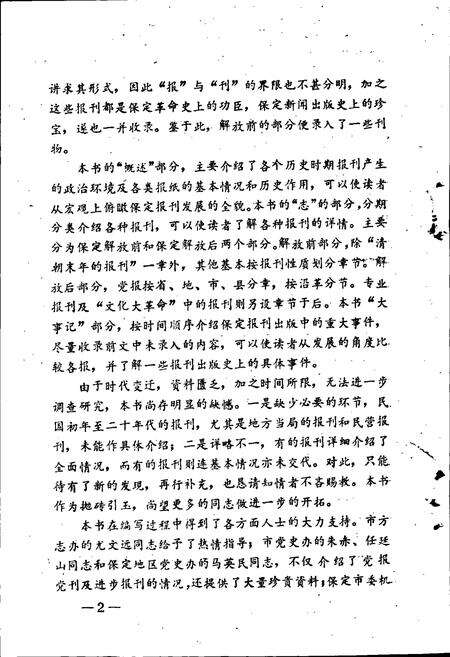 讲求其形式，因此“报”与“刊”的界限也不甚分明，加之
这些报刊都是保定革命史上的功臣，保定新闻出版史上的珍
宝，遂也一并收录。鉴于此，解放前的部分便录入了一些刊
物。
本书的“概述”部分，主要介绍了各个历史时期报刊产生
的政治环境及各类报纸的基本情况和历史作用，可以使读者
从宏观上俯瞰保定报刊发展的全貌。本书的“志”的部分，分期
分类介绍各种报刊，可以使读者了解各种报刊的详情。主要
分为保定解放前和保定解放后两个部分。解放前部分，除“清
朝末年的报刊”一章外，其他基本按报刊性质划分章节。解
放后部分，党报按省、地、市、县分章，按沿革分节。专业
报刊及“文化大革命”中的报刊则另设章节于后。本书“大
事记”部分，按时间顺序介绍保定报刊出版中的重大事件，
尽量收录前文中未录入的内容，可以使读者从发展的角度比
较各报，并了解一些报刊出版史上的具体事件。
由于时代变迁，资料匮乏，加之时间所限，无法进一步
调查研究，本书尚存明显的缺憾。一是缺少必要的环节，民
国初年至二十年代的报刊，尤其是地方当局的报刊和民营报
刊，未能作具体介绍；二是详略不一，有的报刊详细介绍了
全面情况，而有的报刊则连基本情况亦未交代。对此，只能
待有了新的发现，再行补充，也恳请知情者不吝赐教。本书
作为抛砖引玉，尚望更多的同志做进一步的开拓。
本书在编写过程中得到了各方面人士的大力支持。市方
志办的尤文远同志给予了热情指导；市党史办的朱赤、任廷
山同志和保定地区党史办的马英民同志，不仅介绍了党报
党刊及进步报刊的情况，还提供了大量珍贵资料；保定市委机
—2—